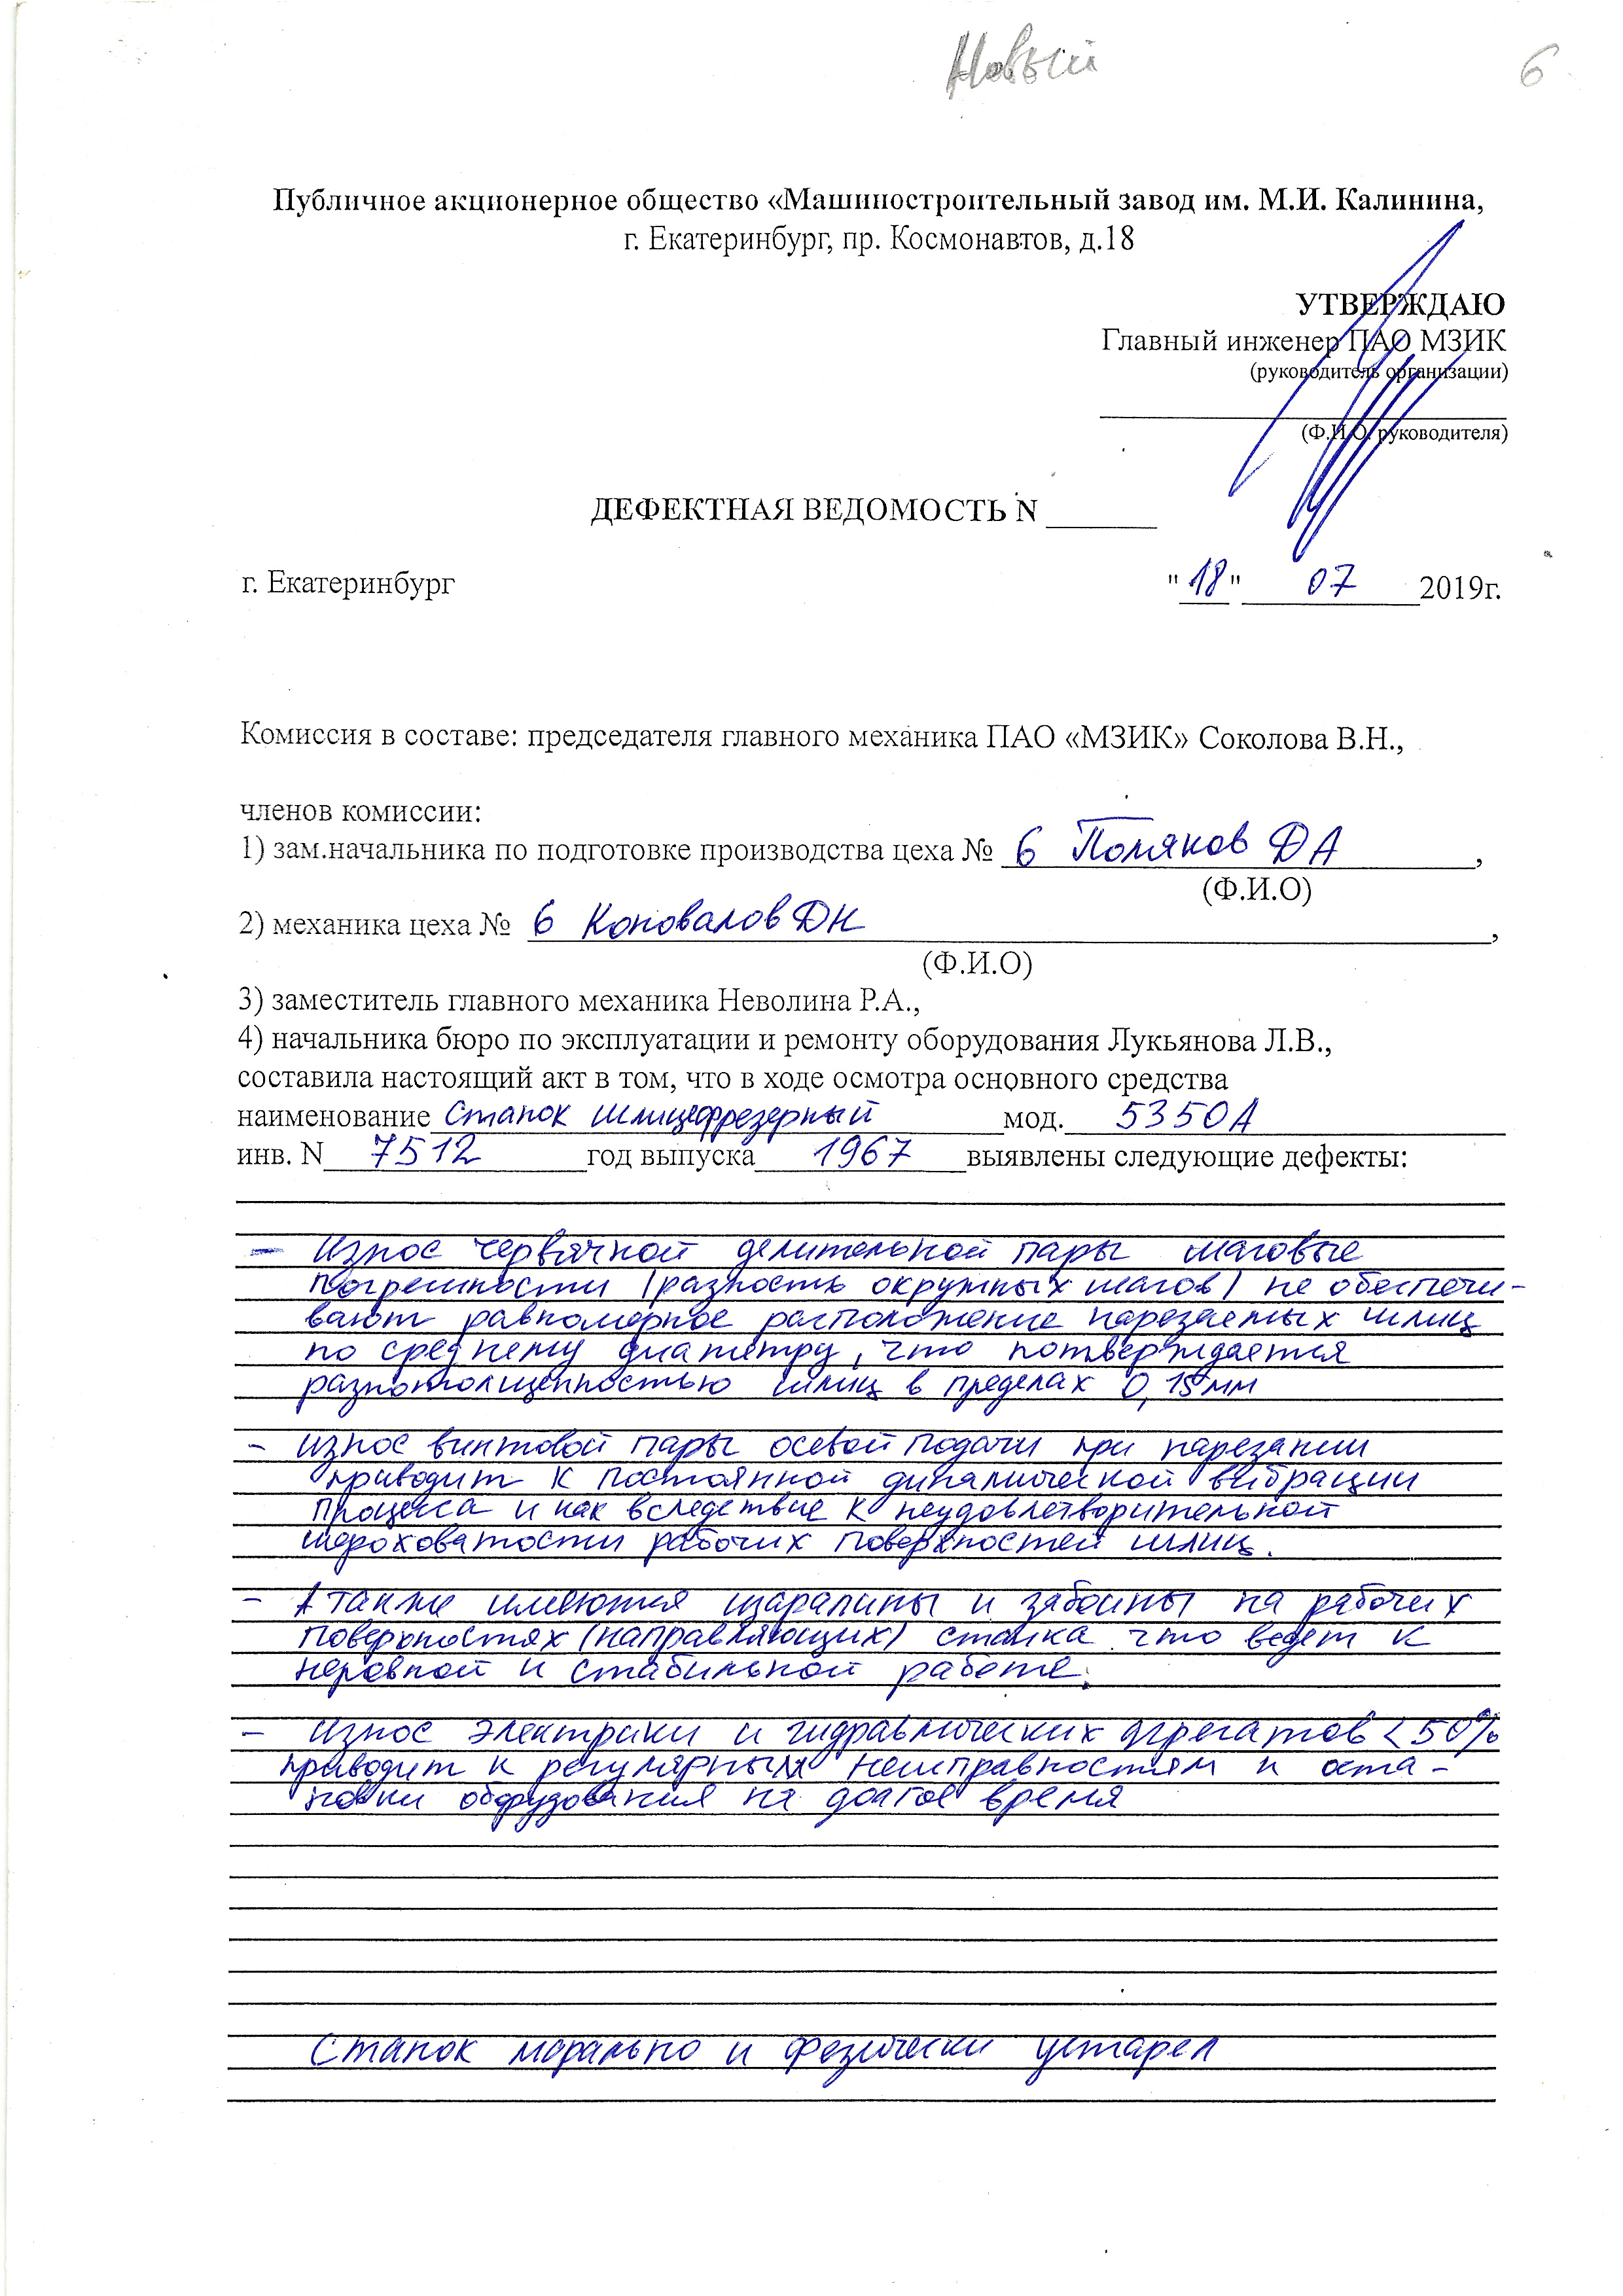 Новый
6
Публичное акционерное общество «Машиностроительный завод им. М.И. Калинина,
г. Екатеринбург, пр. Космонавтов, д.18
УТВЕРЖДАЮ
Главный инженер ПАО МЗИК
(руководитель организации)
(Ф.И.О. руководителя)
ДЕФЕКТНАЯ ВЕДОМОСТЬ N
г. Екатеринбург "18" 07 2019г.
Комиссия в составе: председателя главного механика ПАО «МЗИК» Соколова В.Н.,
членов комиссии:
1) зам.начальника по подготовке производства цеха № 6 Поляков ДА,
(Ф.И.О)
2) механика цеха № 6 Коновалов ДН,
(Ф.И.О)
3) заместитель главного механика Неволина Р.А.,
4) начальника бюро по эксплуатации и ремонту оборудования Лукьянова Л.В.,
составила настоящий акт в том, что в ходе осмотра основного средства
наименование Станок шлицефрезерный мод. 5350А
инв. N 7512 год выпуска 1967 выявлены следующие дефекты:
- Износ червячной делительной пары шаговые
погрешности (разность окружных шагов) не обеспечи-
вают равномерное расположение нарезаемых шлиц
по среднему диаметру, что потверждается
разнотолщенностью шлиц в пределах 0,15мм
- износ винтовой пары осевой подачи при нарезании
приводит к постоянной динамической вибрации
процесса и как вследствие к неудовлетворительной
шероховатости рабочих поверхностей шлиц.
- А также имеются царапины и забоины на рабочих
поверхностях (направляющих) станка что ведет к
неровной и стабильной работе.
- Износ электрики и гидравлических агрегатов < 50%
приводит к регулярным неисправностям и оста-
новки оборудования на долгое время
Станок морально и физически устарел